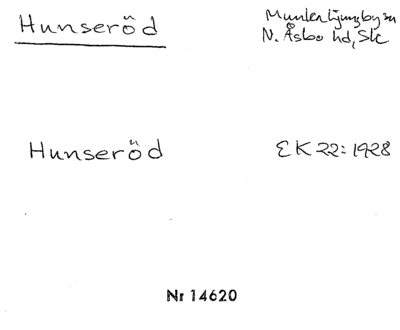 Hunseröd
Munka Ljungby sn
N. Åsbo hd, Sk
Hunseröd
EK 22: 1928
Nr 14620